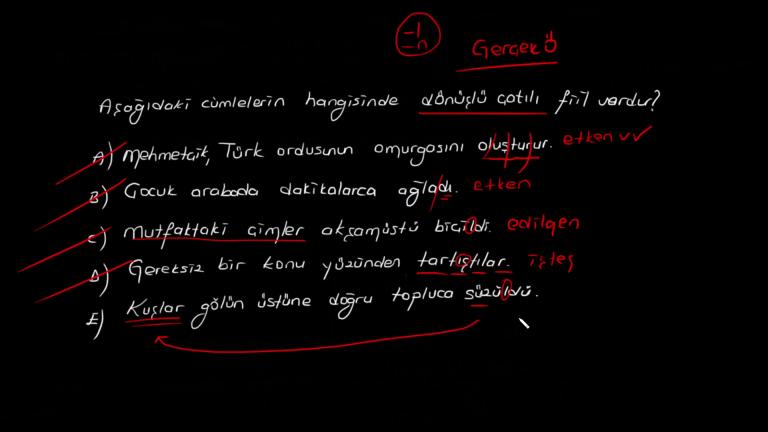 -l
-n
Gerçek Ö
Aşağıdaki cümlelerin hangisinde dönüşlü çatılı fiil vardır?
A) Mehmetçik, Türk ordusunun omurgasını oluşturur. etken
B) Çocuk arabada dakikalarca ağladı. etken
C) Mutfaktaki çimler akşamüstü biçildi. edilgen
D) Gereksiz bir konu yüzünden tartıştılar. işteş
E) Kuşlar gölün üstüne doğru topluca süzüldü.